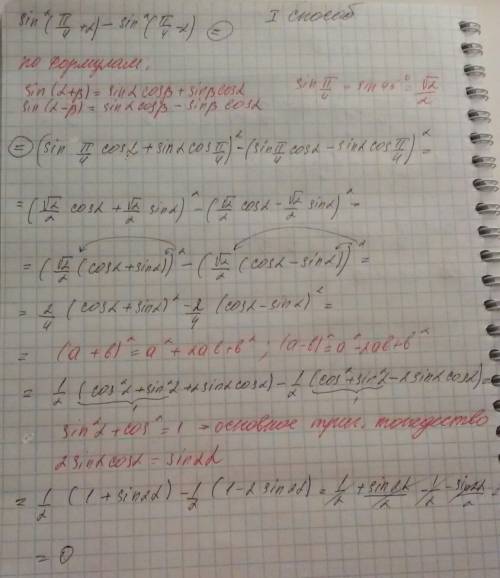 I способ
sin²(π/4+α) − sin²(π/4−α) =
по формулам.
sin(α+β) = sinα cosβ + sinβ cosα
sin(α−β) = sinα cosβ − sinβ cosα
sin π/4 = sin 45° = √2/2
= (sin π/4 cosα + sinα cos π/4)² − (sin π/4 cosα − sinα cos π/4)² =
= (√2/2 cosα + √2/2 sinα)² − (√2/2 cosα − √2/2 sinα)² =
= (√2/2 (cosα + sinα))² − (√2/2 (cosα − sinα))² =
= 2/4 (cosα + sinα)² − 2/4 (cosα − sinα)² =
= (a+b)² = a² + 2ab + b² ; (a−b)² = a² − 2ab + b²
= 1/2 (cos²α + sin²α + 2sinα cosα) − 1/2 (cos² + sin²α − 2sinα cosα) =
1 1
sin²α + cos² = 1 → основное триг. тождество
2sinα cosα = sin2α
= 1/2 (1 + sin2α) − 1/2 (1 − 2 sin2α) = 1/2 + sin2α/2 − 1/2 − sin2α/2 =
= 0